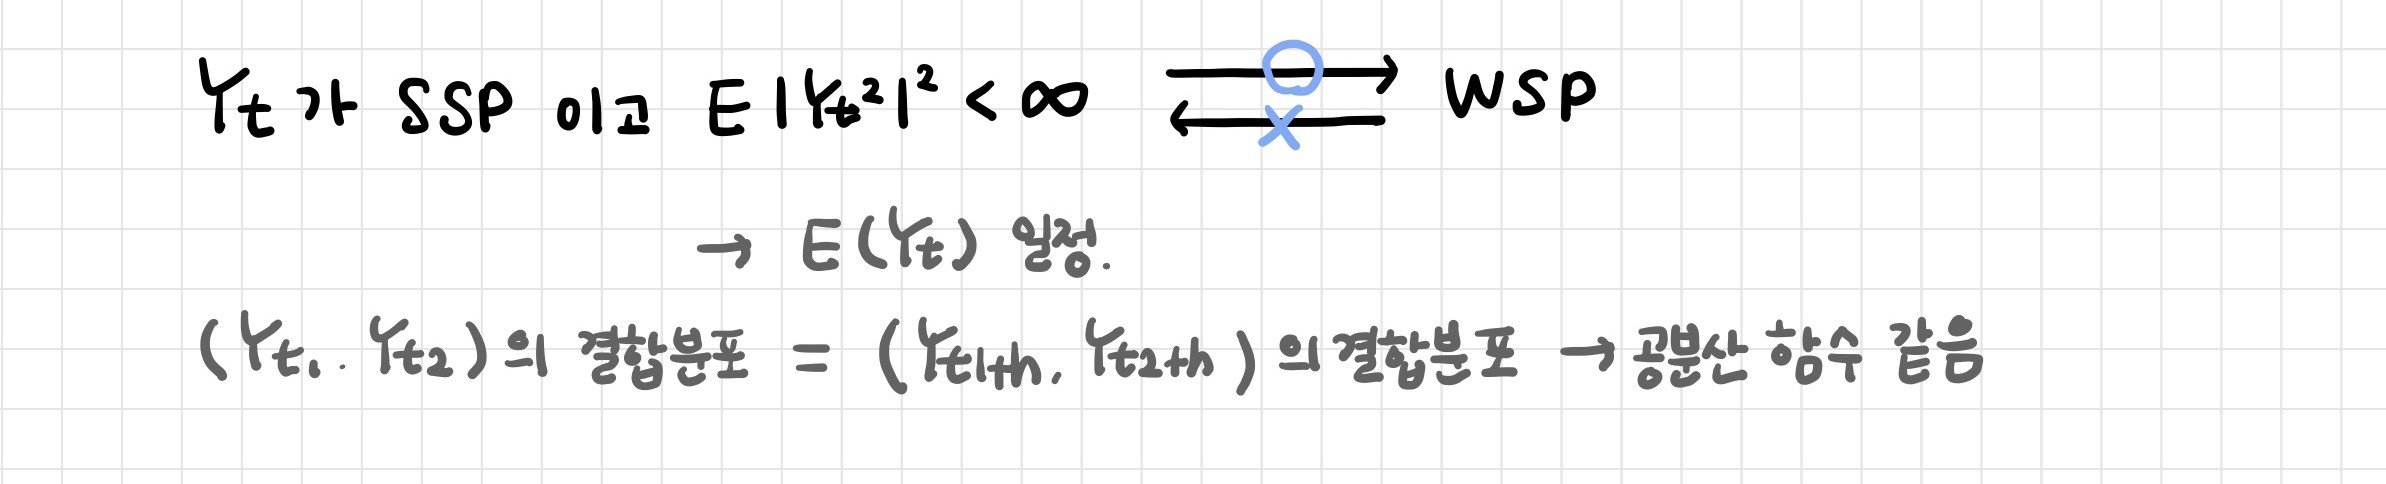 Yt가 SSP 이고 E|Yt²|² < ∞ ⟶ O ⟵ X WSP
→ E(Yt) 일정.
(Yt1. Yt2)의 결합분포 = (Yt1+h, Yt2+h)의 결합분포 → 공분산 함수 같음